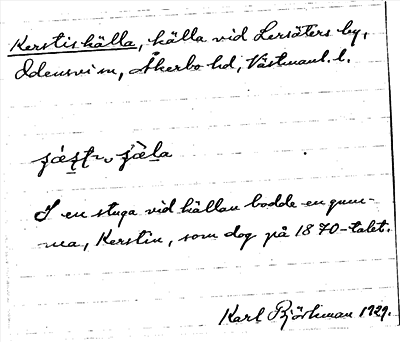 Kerstiskälla, källa vid Lersäters by,
Odensvi sn, Åkerbo hd, Västmanl. l.
I en stuga vid källan bodde en gum-
ma, Kerstin, som dog på 1870-talet.
Karl Björkman 1929.